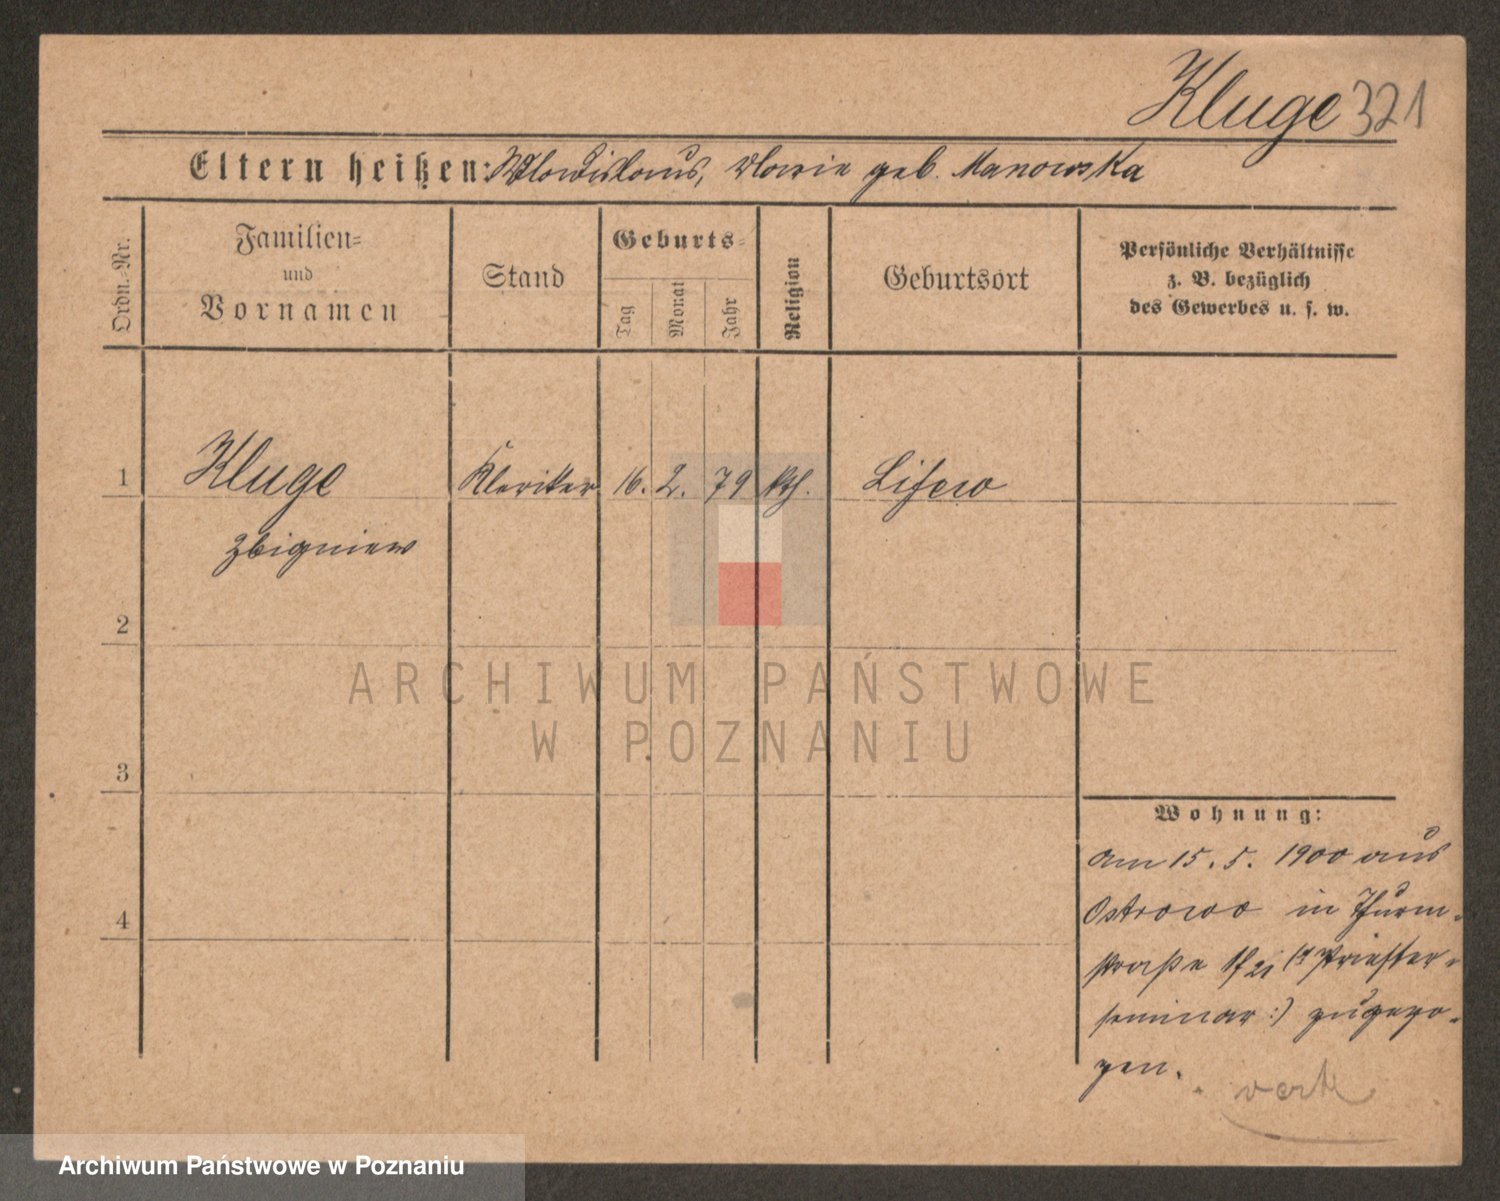 Kluge 321
Eltern heißen: Wladislaus, Marie geb. Manowska
Ordn.-Nr.
Familien-
und
Vornamen
Stand
Geburts-
Tag
Monat
Jahr
Religion
Geburtsort
Persönliche Verhältnisse
z. B. bezüglich
des Gewerbes u. s. w.
1 Kluge Kleriker 16. 2. 79 kth. Lissewo
Zbigniew
2
3
4
Wohnung:
am 15. 5. 1900 aus
Ostrowo in Thurm-
straße (: Priester-
seminar :) zugezo-
gen.
ARCHIWUM PAŃSTWOWE
W POZNANIU
Archiwum Państwowe w Poznaniu